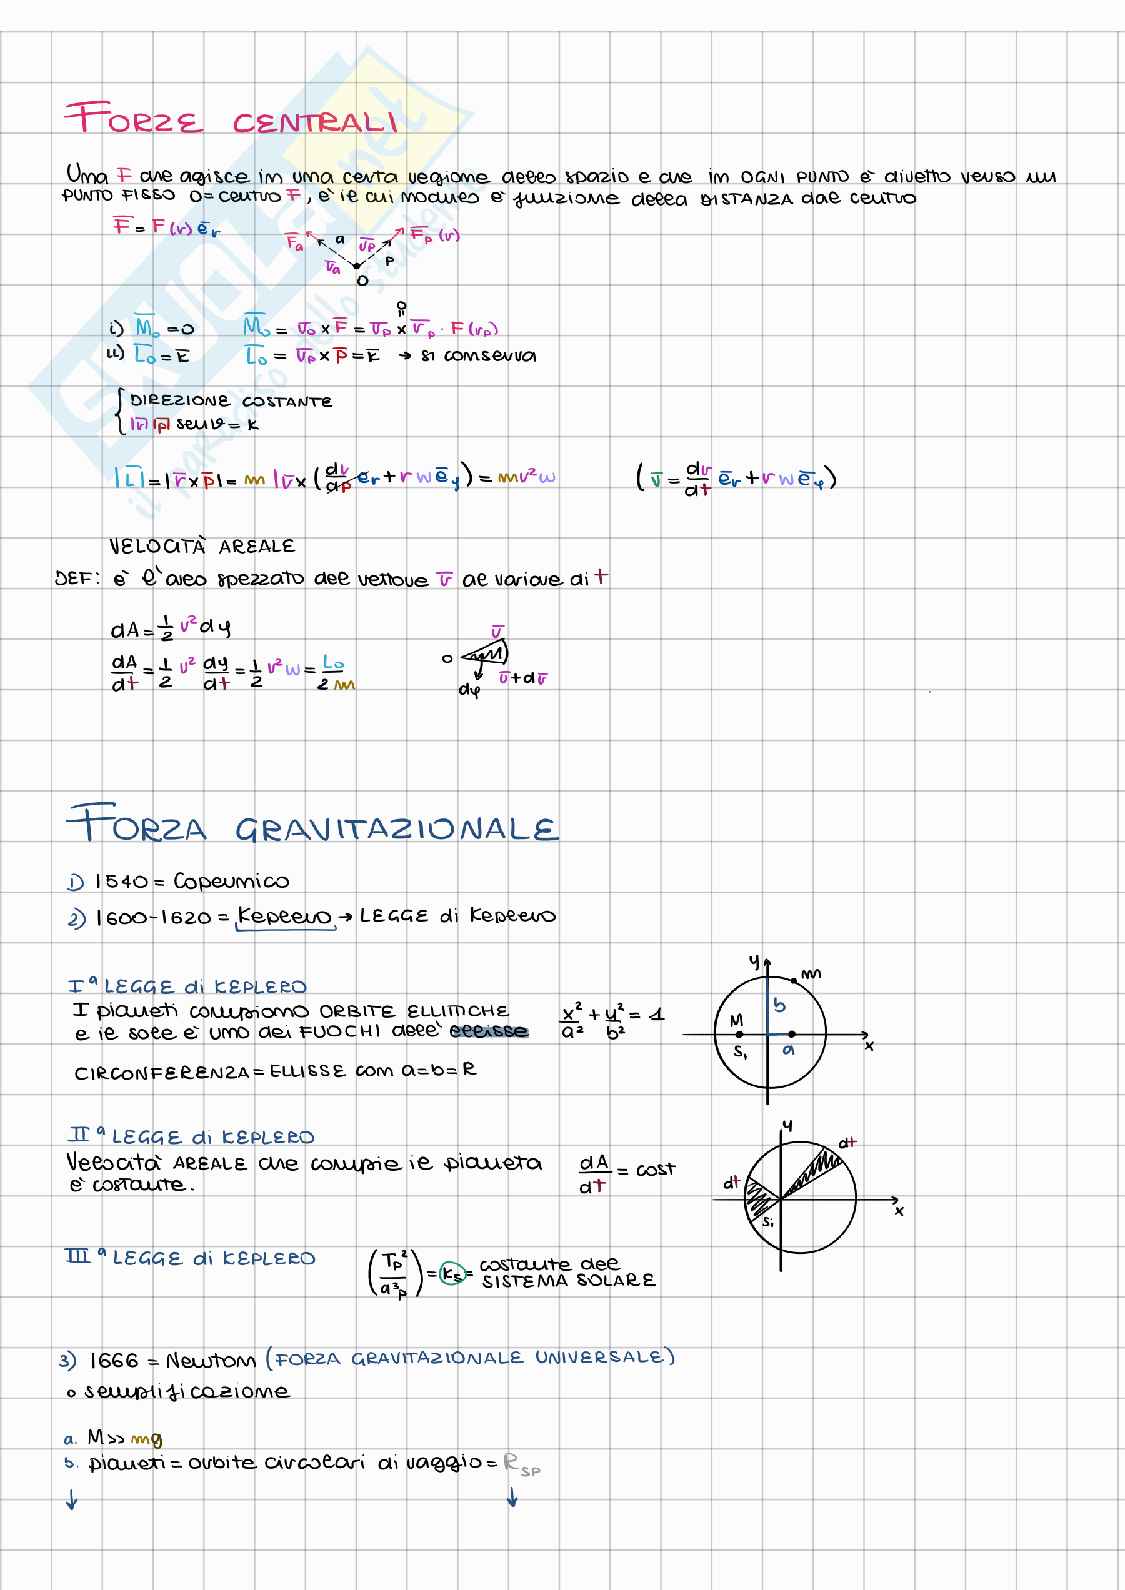 FORZE CENTRALI
Una F che agisce in una certa regione dello spazio e che in OGNI PUNTO è diretto verso un
PUNTO FISSO O= centro F, è il cui modulo è funzione della DISTANZA dal centro
F̅ = F(r) e̅r
F̅a a r̅p F̅p (r)
r̅a P
O
0
i) M̅o = 0 M̅o = r̅o × F̅ = r̅p × r̅p · F(rp)
ii) L̅o = K̅ L̅o = r̅p × p̅ = K̅ → si conserva
DIREZIONE COSTANTE
|r̅| |p̅| senϑ = K
|L̅| = |r̅×p̅| = m |r̅ × (dr/dp e̅r + r w e̅φ) = mr²w (v̅ = dr/dt e̅r + r w e̅φ)
VELOCITÀ AREALE
DEF: è l'area spezzato del vettore r̅ al variare di t
dA = 1/2 r² dφ
dA/dt = 1/2 r² dφ/dt = 1/2 r² w = Lo/2m
r̅
O
r̅+dr̅
dφ
FORZA GRAVITAZIONALE
1) 1540 = Copernico
2) 1600-1620 = Keplero → LEGGE di Keplero
Iª LEGGE di KEPLERO
I pianeti compiono ORBITE ELLITTICHE x²/a² + y²/b² = 1
e il sole è uno dei FUOCHI dell' ellisse
CIRCONFERENZA = ELLISSE con a=b=R
y m
b
M
S₁ a x
IIª LEGGE di KEPLERO
Velocità AREALE che compie il pianeta dA/dt = cost
è costante.
y dt
dt
S₁ x
IIIª LEGGE di KEPLERO (Tp²/a³p) = Ks = costante del
SISTEMA SOLARE
3) 1666 = Newton (FORZA GRAVITAZIONALE UNIVERSALE)
o semplificazione
a. M>> mg
b. pianeti = orbite circolari di raggio = RSP
↓ ↓
SKUOLA.net
il paradiso dello studente